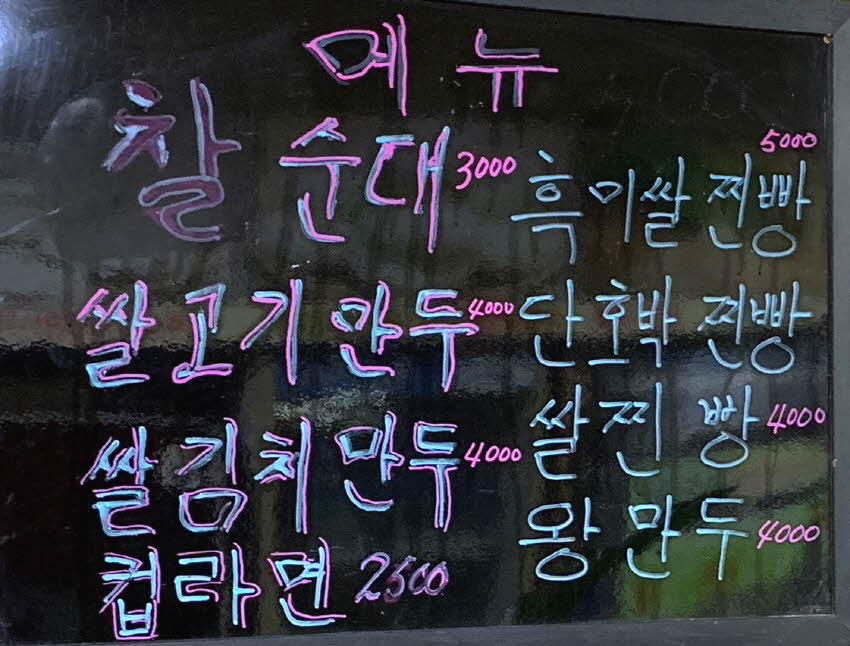 메뉴
찰 순대 3000
쌀고기 만두 4000
쌀김치 만두 4000
컵라면 2500
5000
흑미쌀 찐빵
단호박 찐빵
쌀찐빵 4000
왕만두 4000